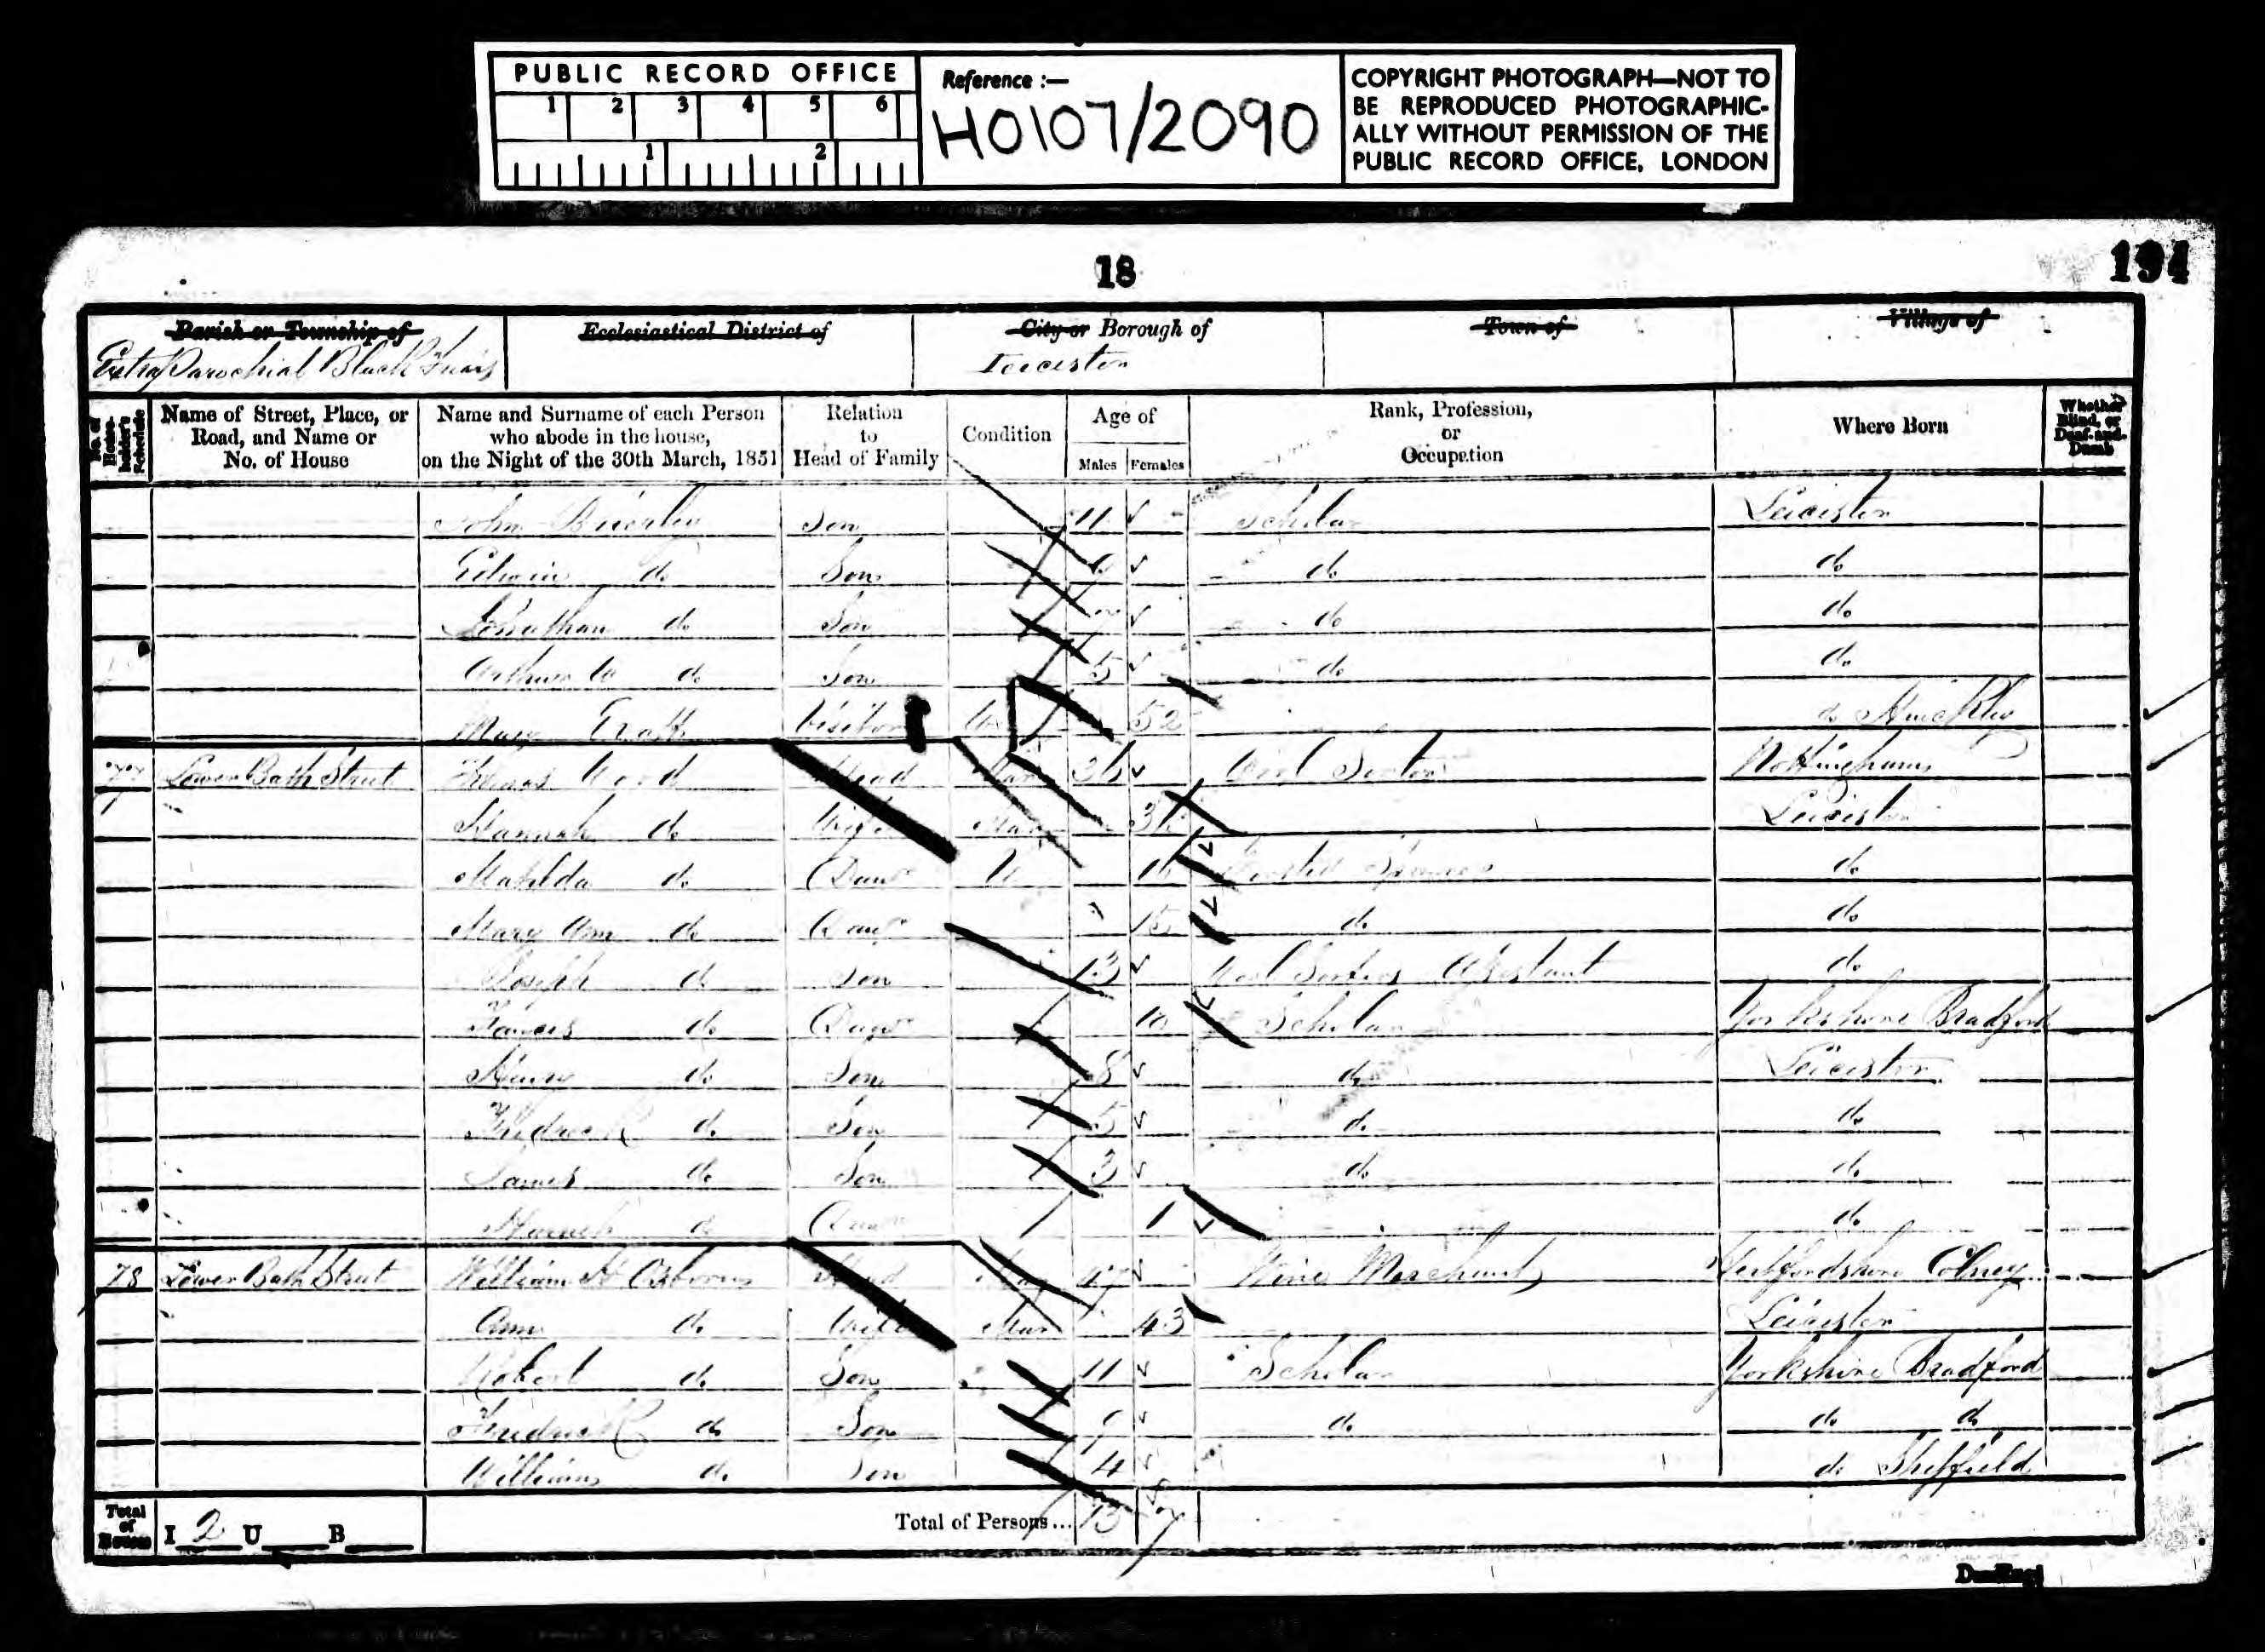 PUBLIC RECORD OFFICE
1 2 3 4 5 6
1 2
Reference :—
HO107/2090
COPYRIGHT PHOTOGRAPH—NOT TO
BE REPRODUCED PHOTOGRAPHIC-
ALLY WITHOUT PERMISSION OF THE
PUBLIC RECORD OFFICE, LONDON
18
194
Parish or Township of Ecclesiastical District of City or Borough of Town of Village of
Extra Parochial Black Friars Leicester
No. of House-holder's Schedule
Name of Street, Place, or Road, and Name or No. of House
Name and Surname of each Person who abode in the house, on the Night of the 30th March, 1851
Relation to Head of Family
Condition
Age of
Males Females
Rank, Profession, or Occupation
Where Born
Whether Blind, or Deaf-and-Dumb
John Son 11 Scholar Leicester
Edwin do Son 9 do do
Jonathan do Son do do
Arthur W do Son 5 do do
Mary Visitor 52 do Hinckley
77 Lower Bath Street Thomas Wood Head Mar 36 Wool Sorter Nottingham
Hannah do Wife Mar Leicester
Matilda do Daur U 16 Worsted Spinner do
Mary Ann do Daur 15 do do
Joseph do Son 13 Wool Sorters Assistant do
Frances do Daur 10 Scholar Yorkshire Bradford
Henry do Son 8 do Leicester
Fredrick do Son 5 do do
James do Son 3 do do
Hannah do Daur 1 do
78 Lower Bath Street William H Osborne Head Mar 47 Wine Merchant Hertfordshire Colney
Ann do Wife Mar 43 Leicester
Robert do Son 11 Scholar Yorkshire Bradford
Fredrick do Son 9 do do do
William do Son 4 do Sheffield
Total of Houses
I 2 U B
Total of Persons... 13 7